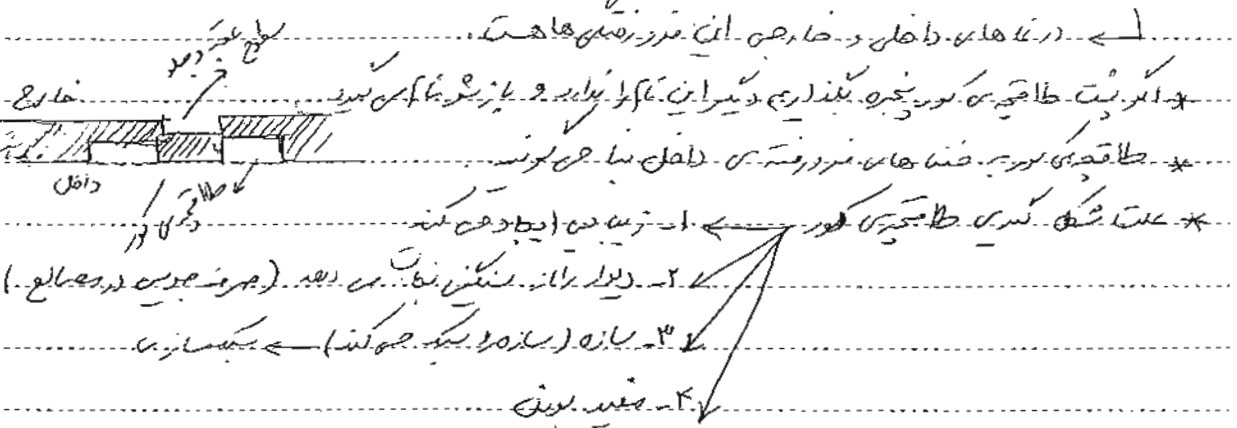 در نماهای داخلی و خارجی این فرورفتگی ها هست.
* اگر پشت طاقچه ی کور پنجره بگذاریم دیگر این نام را ندارد و بازشو نام می گیرد.
* طاقچه ی کور به فضاهای فرورفته ی داخل نما می گویند
* علت شکل گیری طاقچه ی کور ← ۱- زیبایی ایجاد می کند
۲- دیوار را از سنگینی نجات می دهد (صرفه جویی در مصالح)
۳- سازه (سازه را سبک می کند) ← سبکسازی
۴- مفید بودن
خارج
داخل
طاقچه ی کور